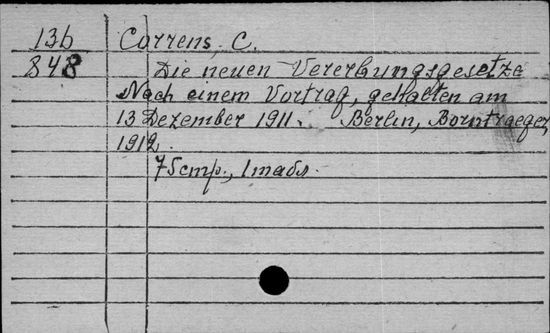 13b Correns, C.
848 Die neuen Vererbungsgesetze
Nach einem Vortrag, gehalten am
13 Dezember 1911. Berlin, Borntraeger,
1912.
75 cmp., 1 mabs.